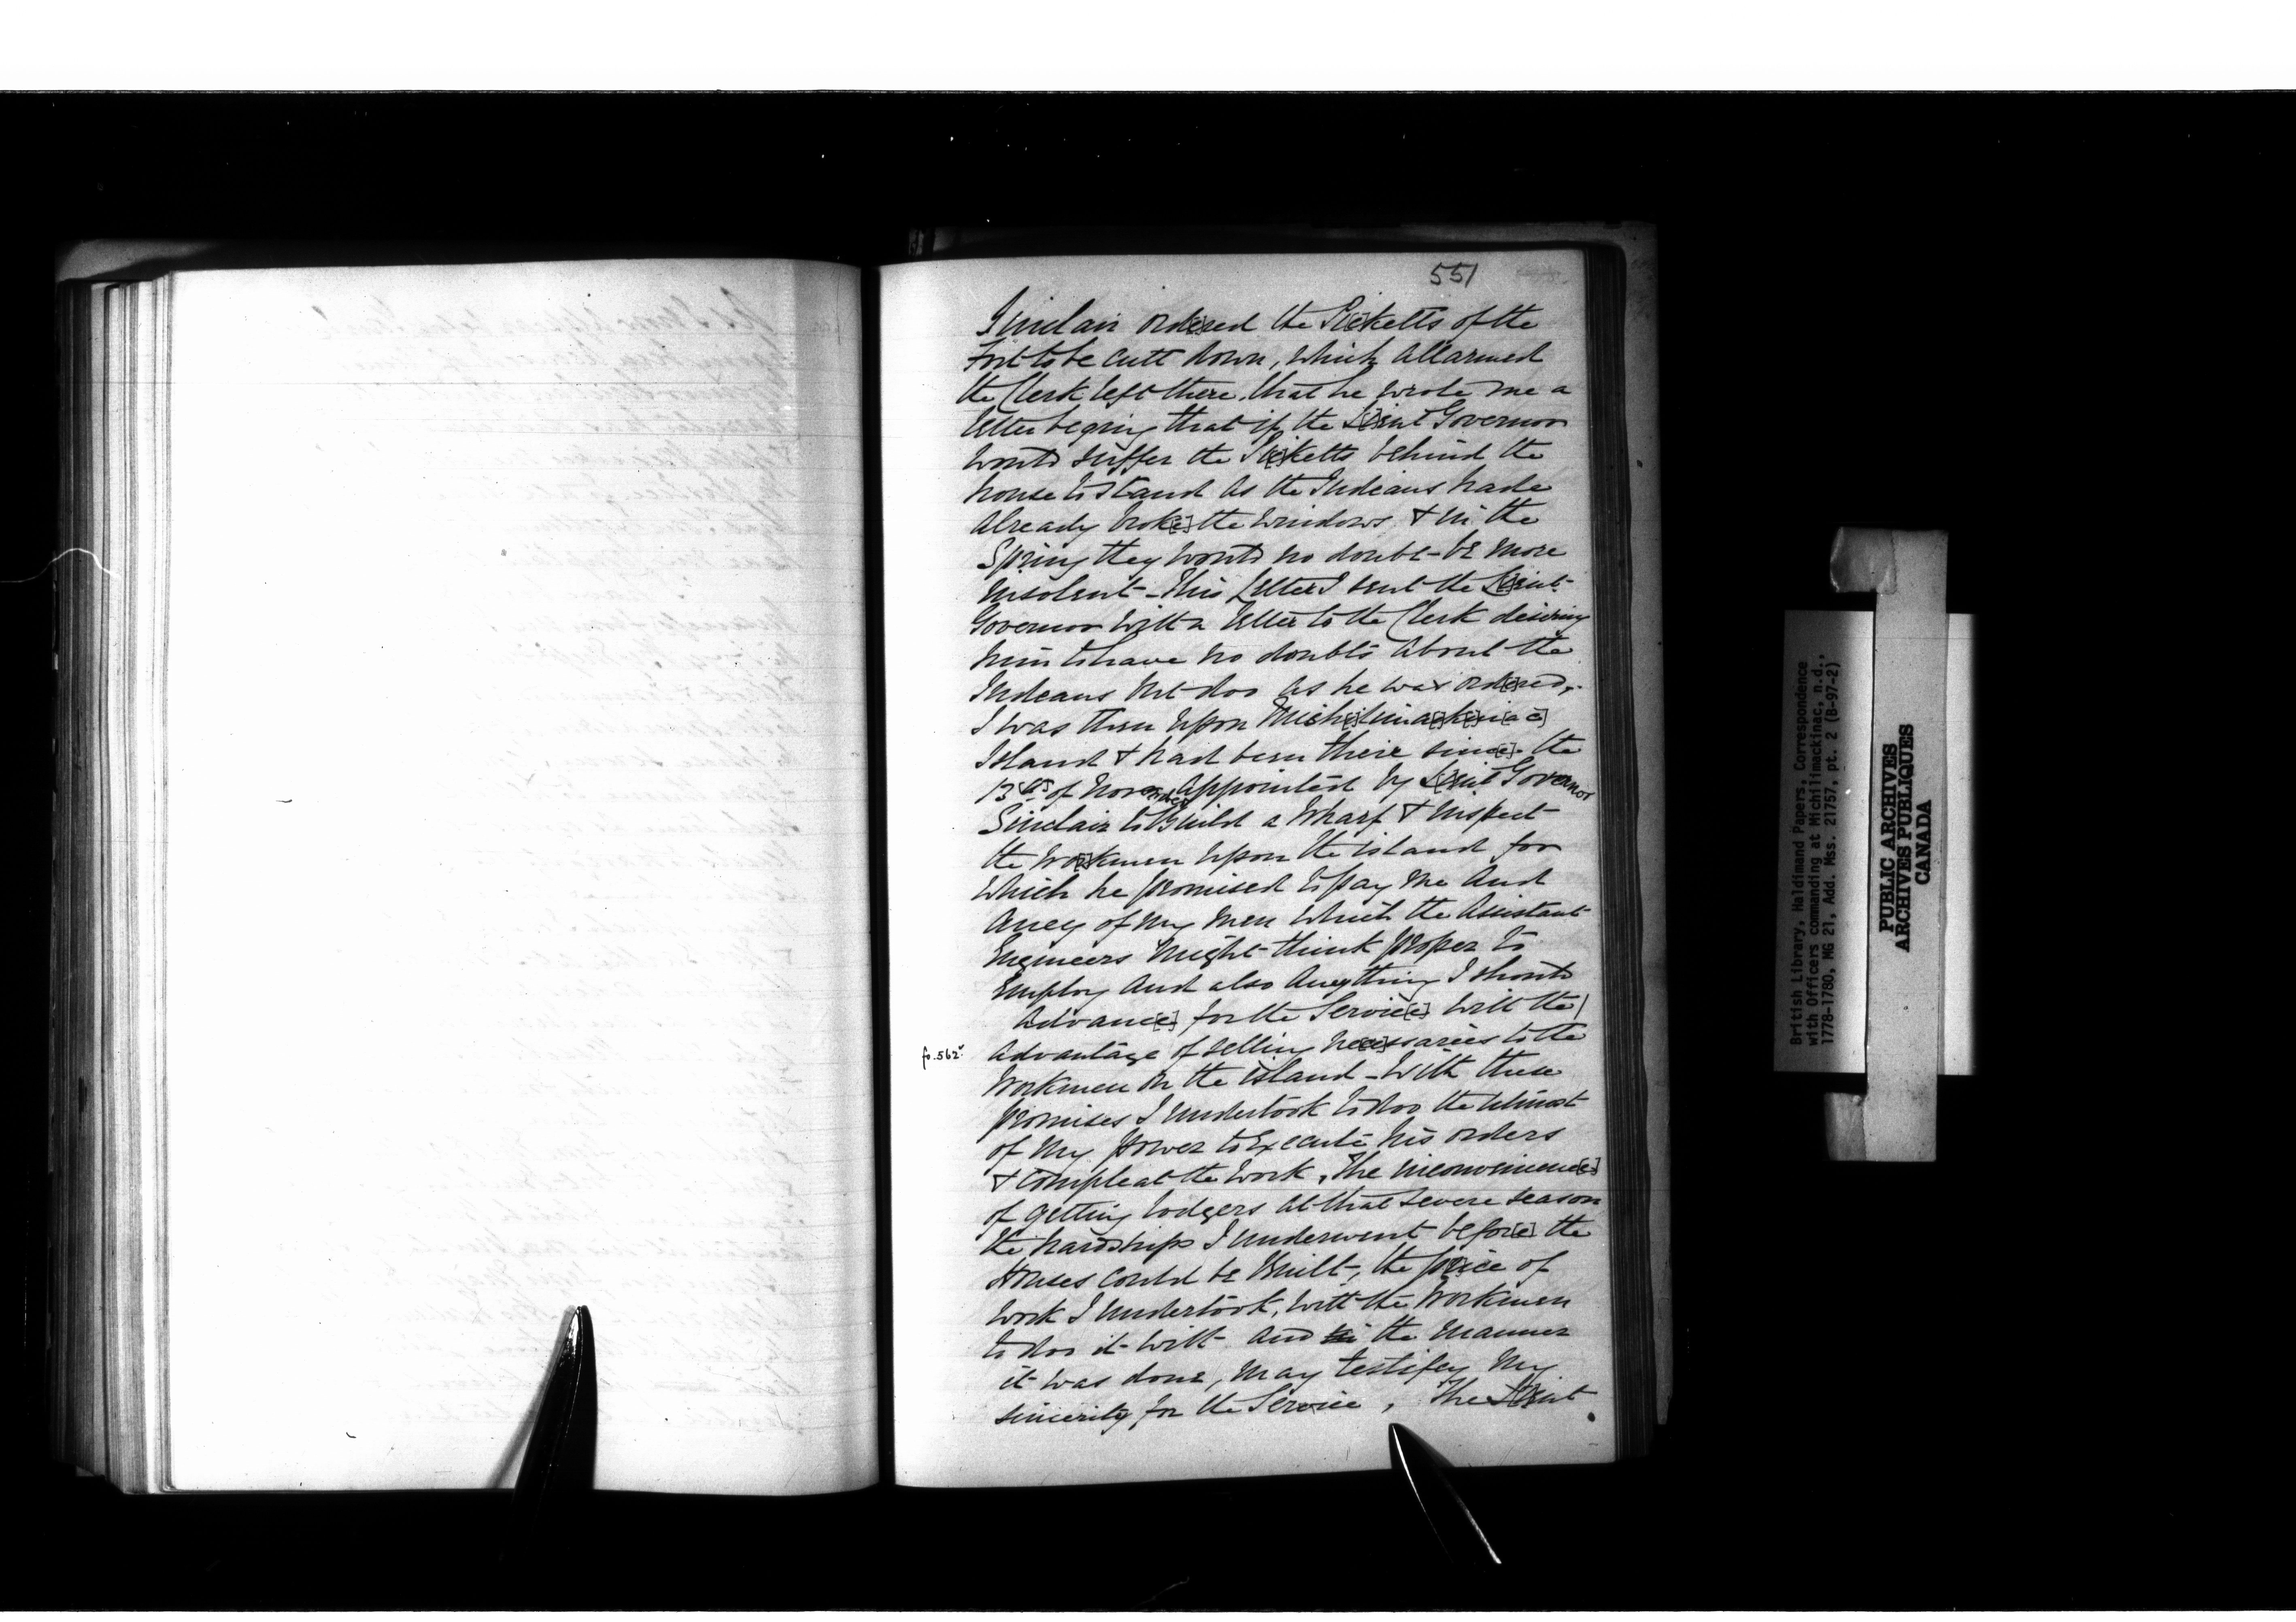 551
Sinclair ord[e]red the Pi[c]ketts of the
Fort to be cutt down, which allarmed
the Clerk left there, that he wrote me a
letter beging that if the L[i]eut Governor
would suffer the Pi[c]ketts behind the
house to stand as the Indeans hade
already brok[e] the windows & in the
Spring they would no doubt be more
insolent - This Letter I sent the L[i]eut
Governor with a letter to the Clerk desiring
him to have no doubts about the
Indeans but doo as he was ord[e]red,
I was then upon Mich[i]lima[c]k[i]n[a c]
Island & had been there sinc[e] the
13th of November appointed by L[i]eut Governor
Sinclair to Build a Wharf & inspect
the wo[r]kmen upon the island for
which he promised to pay me and
aney of my men which the Assistant
Engineers might think proper to
Employ and also aneything I should
advanc[e] for the Servic[e] with the
fo. 562v.
advantage of selling ne[ce]ssaries to the
workmen on the island - With these
promises I undertook to doo the utmost
of my power to Execute his orders
& compleat the work, The inconvenienc[e]
of getting lodgers at that severe season
the hardships I underwent befor[e] the
Houses could be built, the p[r]ice of
work I undertook, with the workmen
to doo it with and the manner
it was done, may testifey my
sincerity for the Service, The L[i]eut
British Library, Haldimand Papers, Correspondence
with Officers commanding at Michilimackinac, n.d.,
1778-1780, MG 21, Add. Mss. 21757, pt. 2 (B-97-2)
PUBLIC ARCHIVES
ARCHIVES PUBLIQUES
CANADA